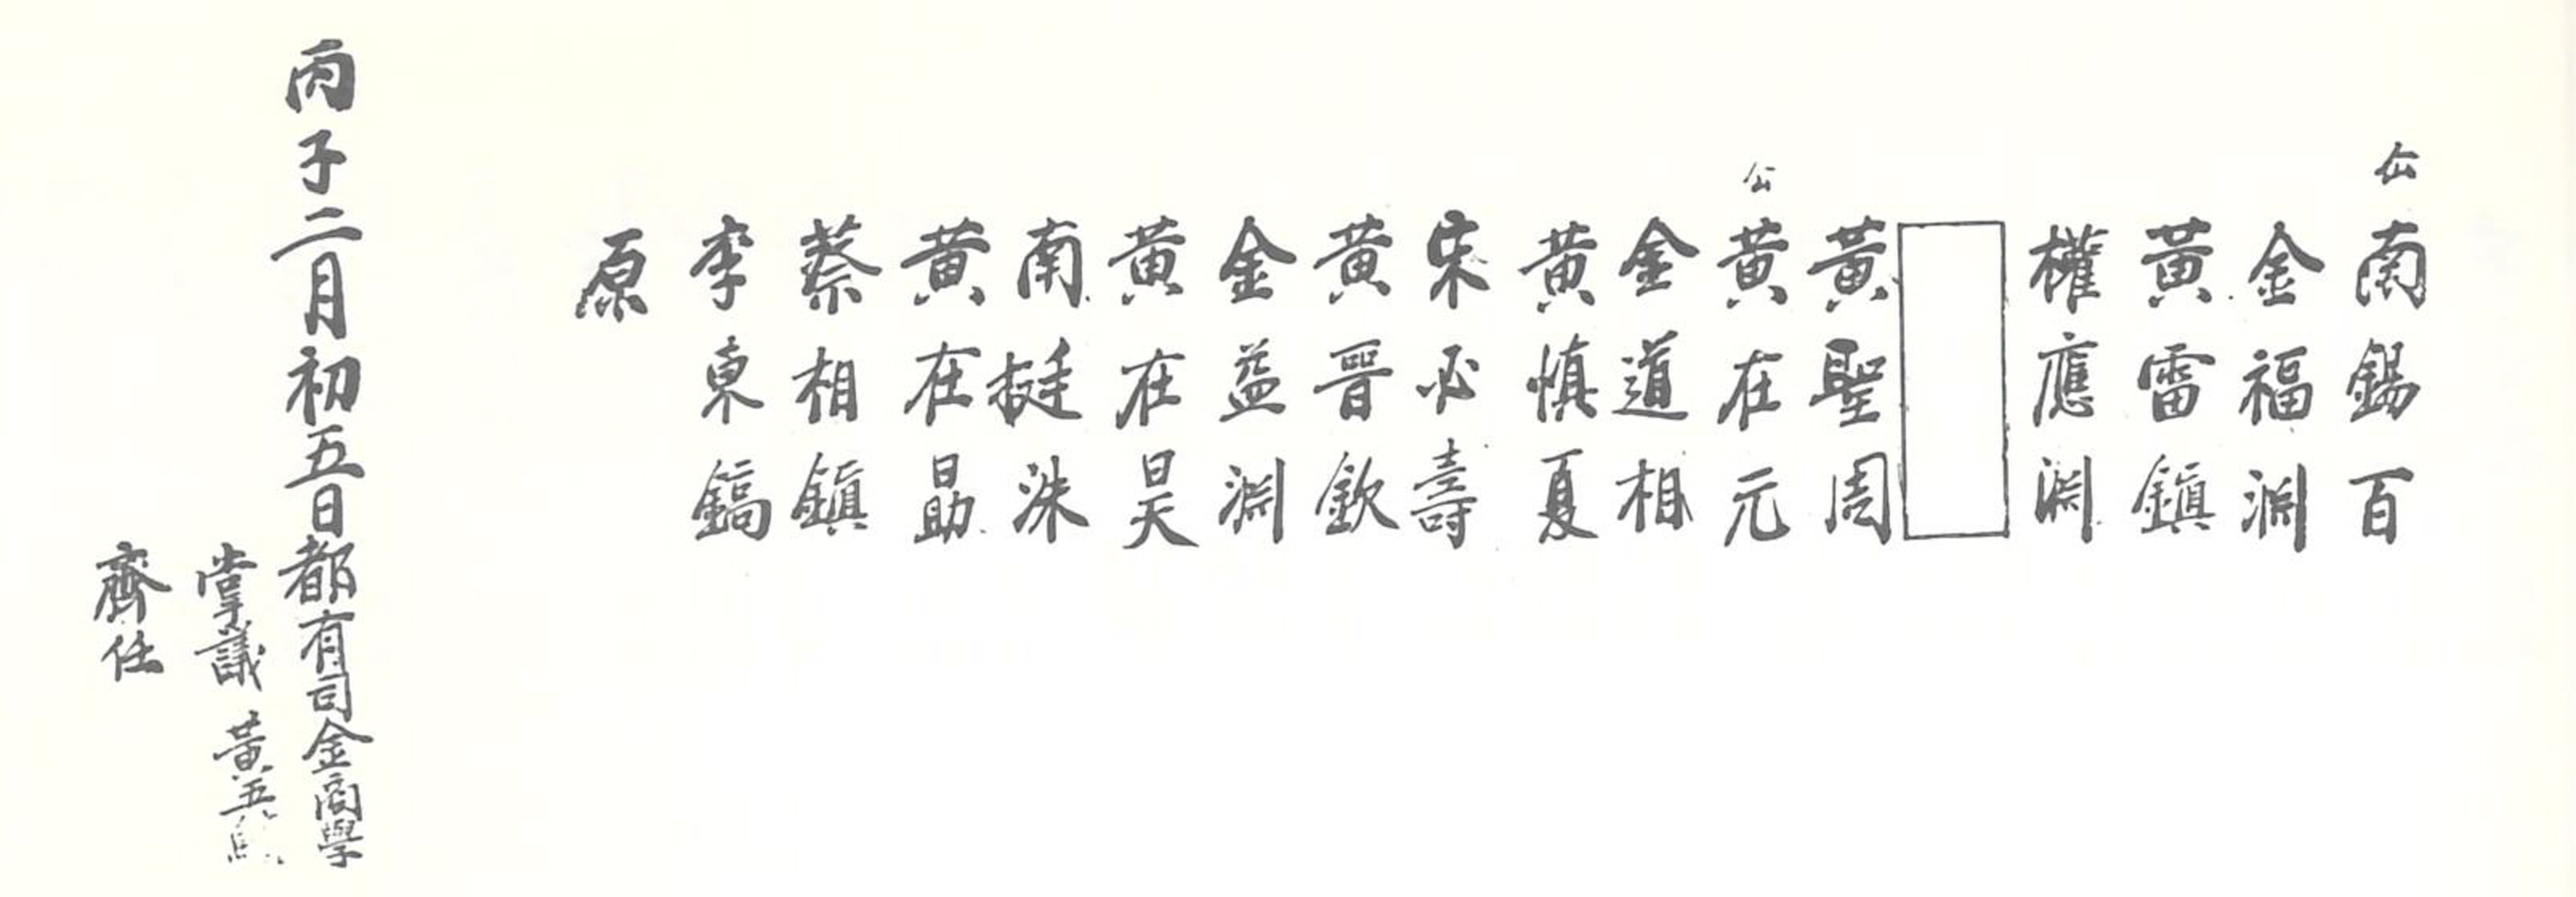 仚 南錫百
金福淵
黃雷鎮
權應淵
黃聖周
公 黃在元
金道相
黃慎夏
宋必壽
黃晉欽
金益淵
黃在昊
南挺洙
黃在勗
蔡相鎮
李東鎬
原
丙子二月初五日都有司金商學
掌議 黃五
齋任